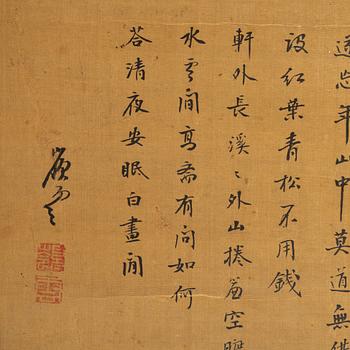 透忘年山中莫道無供
設紅葉青松不用錢
軒外長溪〻外山捲簾空曠
水雲間高齋有問如何
答清夜安眠白晝閒